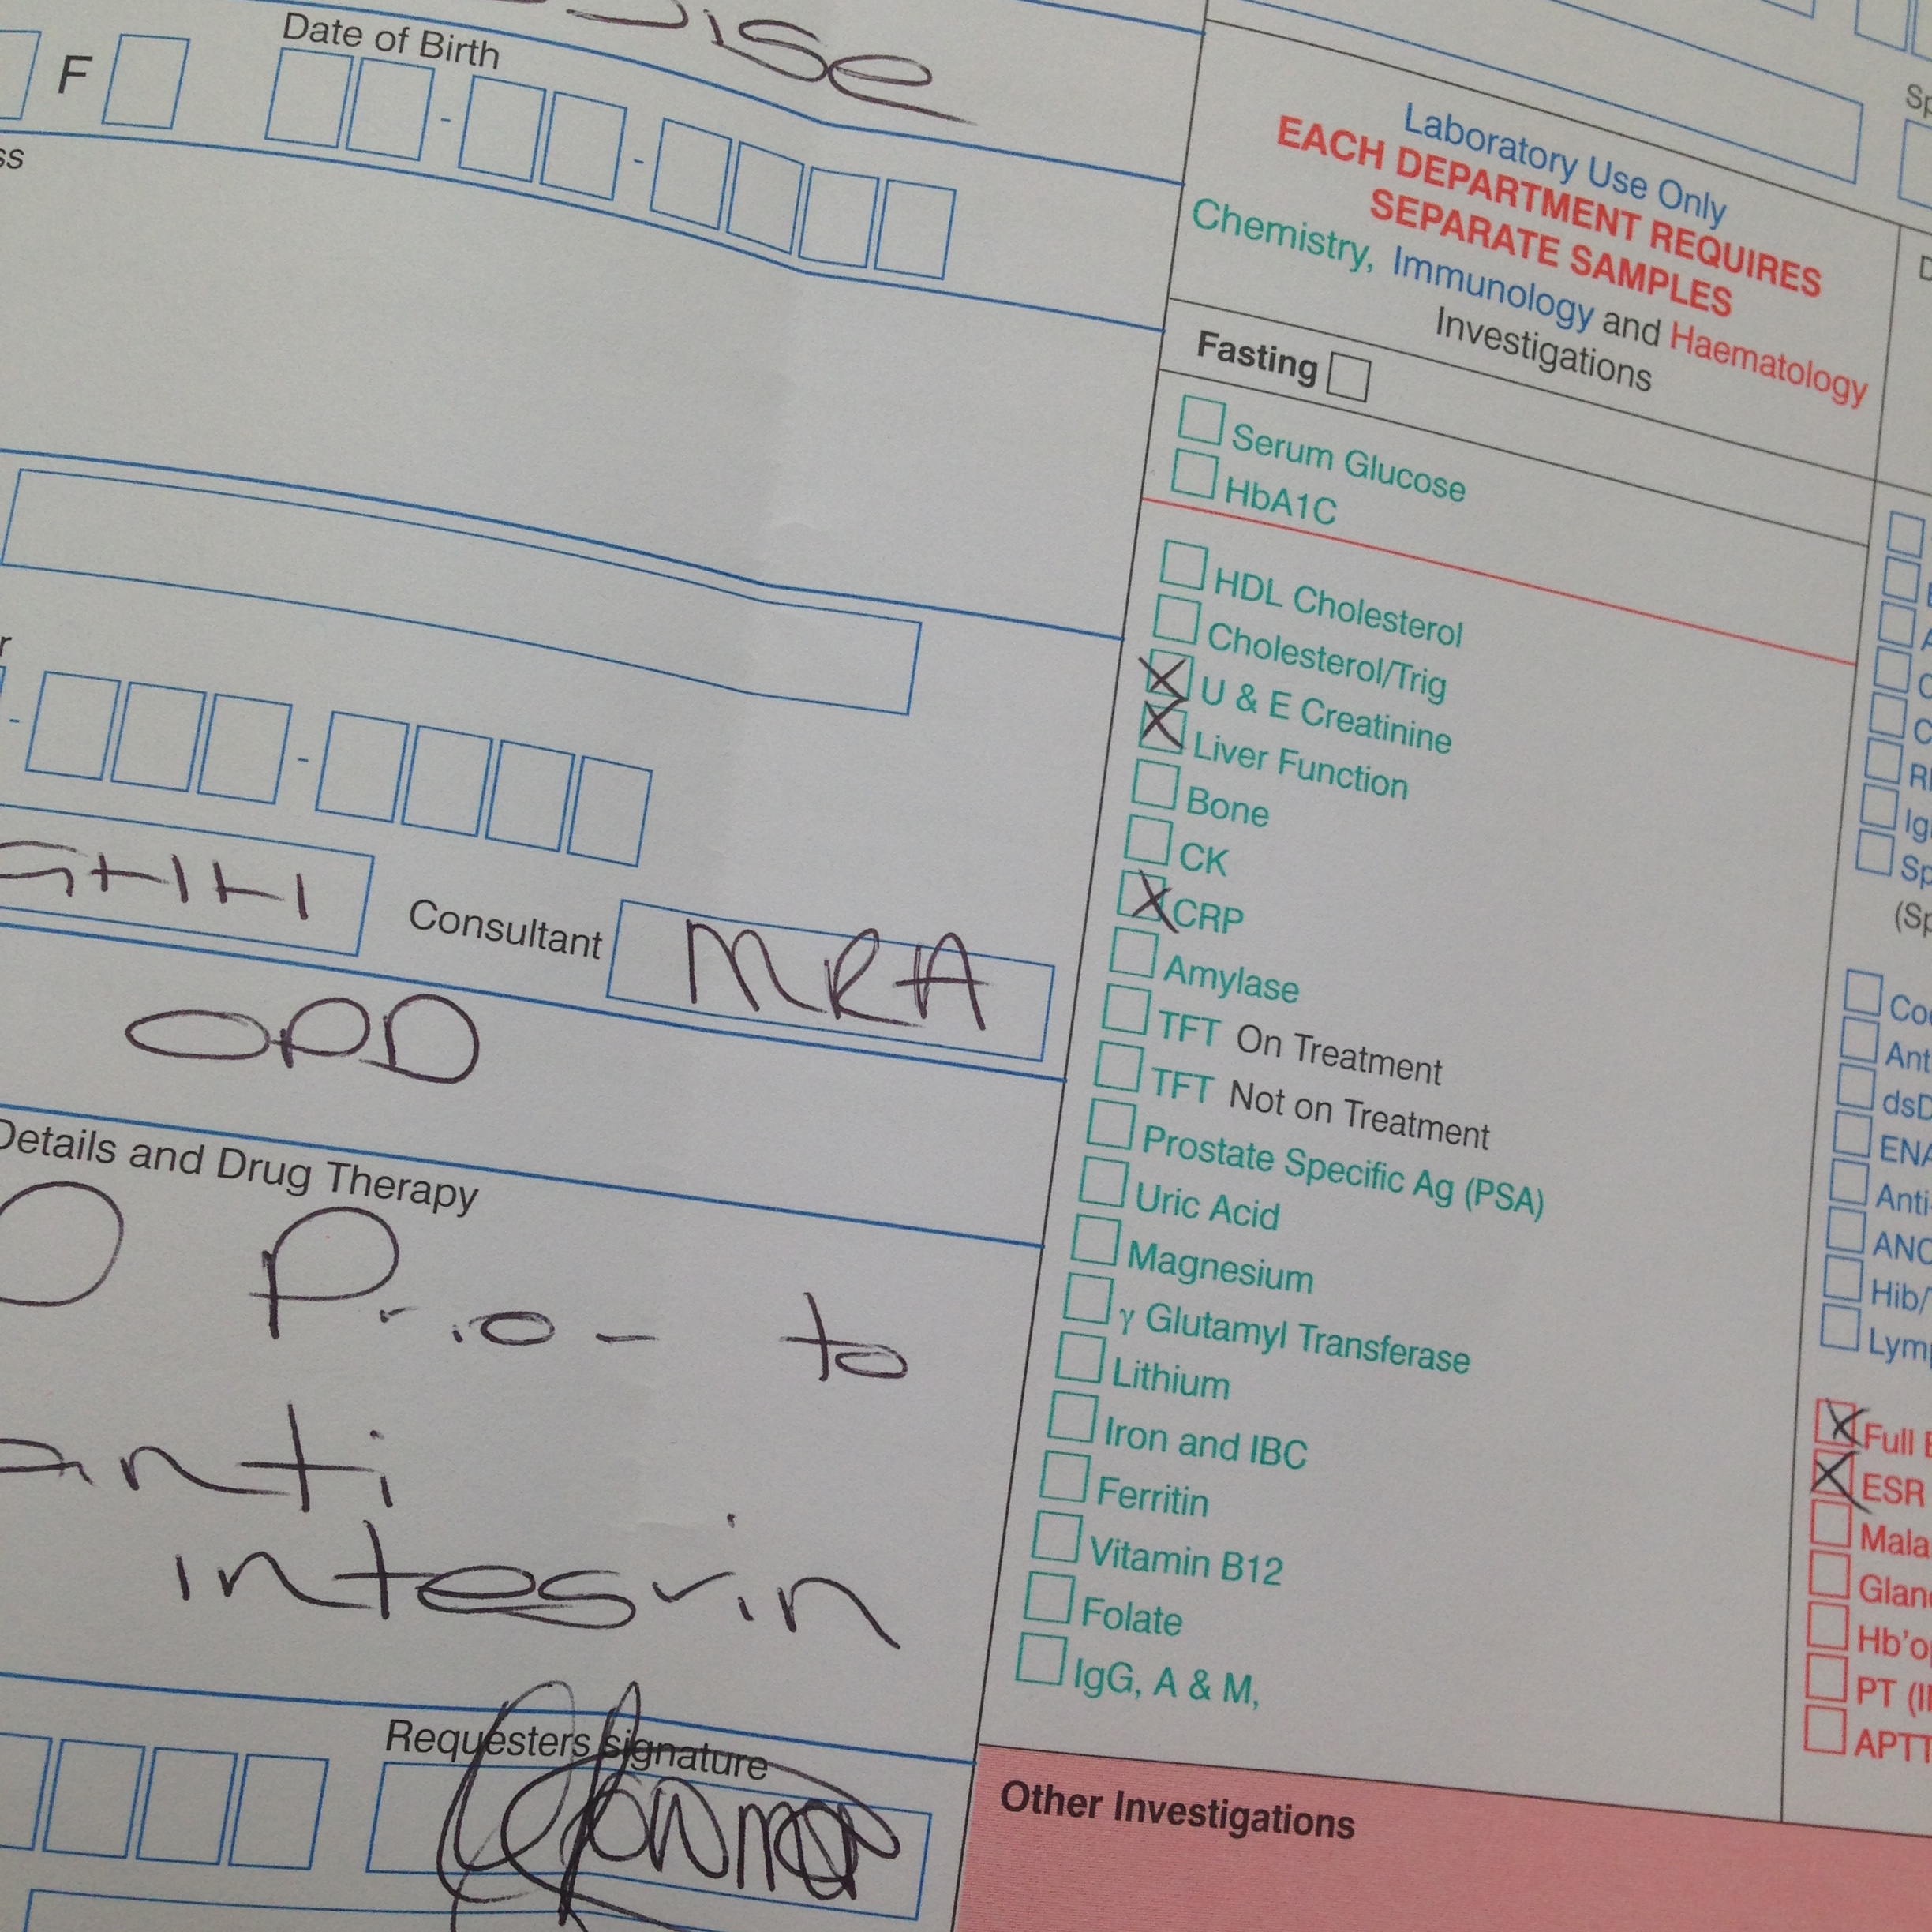 Date of Birth
F
ss
r
GHIH
Consultant
MRA
OPD
Details and Drug Therapy
Prior to
anti
integrin
Requesters signature
Laboratory Use Only
EACH DEPARTMENT REQUIRES
SEPARATE SAMPLES
Chemistry, Immunology and Haematology
Investigations
Fasting
Serum Glucose
HbA1C
HDL Cholesterol
Cholesterol/Trig
U & E Creatinine
Liver Function
Bone
CK
CRP
Amylase
TFT On Treatment
TFT Not on Treatment
Prostate Specific Ag (PSA)
Uric Acid
Magnesium
γ Glutamyl Transferase
Lithium
Iron and IBC
Ferritin
Vitamin B12
Folate
IgG, A & M,
Other Investigations
Sp
(Sp
Coe
Ant
dsD
ENA
Anti
ANC
Hib/
Lymp
Full
ESR
Mala
Gland
Hb'o
PT (I
APTT